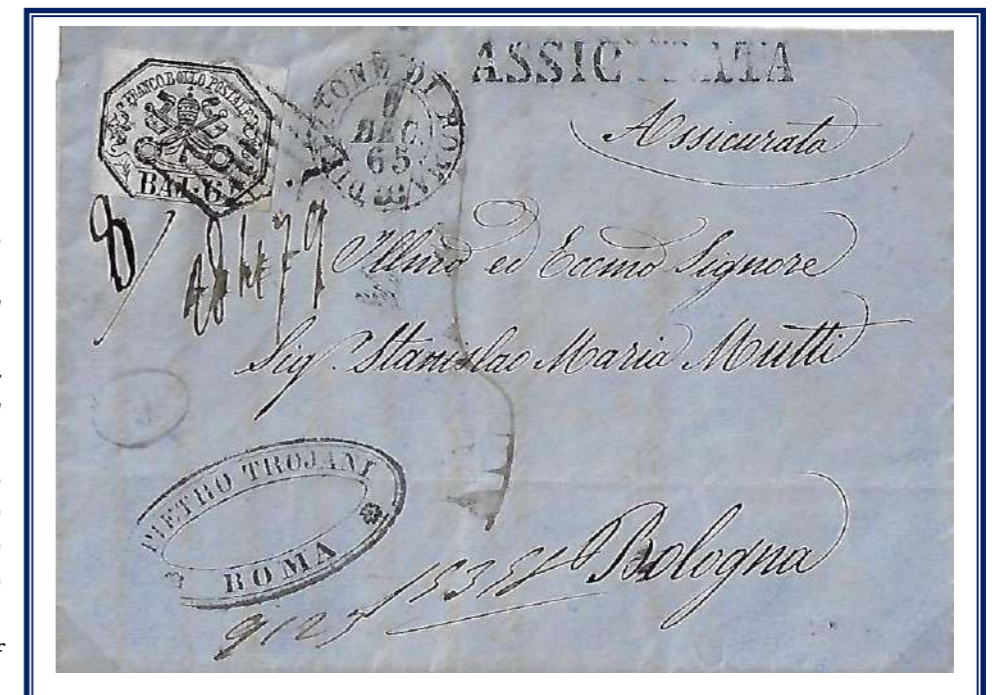 FRANCO BOLLO POSTALE
BAI. 6
DIREZIONE DI ROMA
DEC.
65
ASSICURATA
Assicurata
8/
Illmo ed Eccmo Signore
Sig. Stanislao Maria Mutti
PIETRO TROJANI
ROMA
Bologna